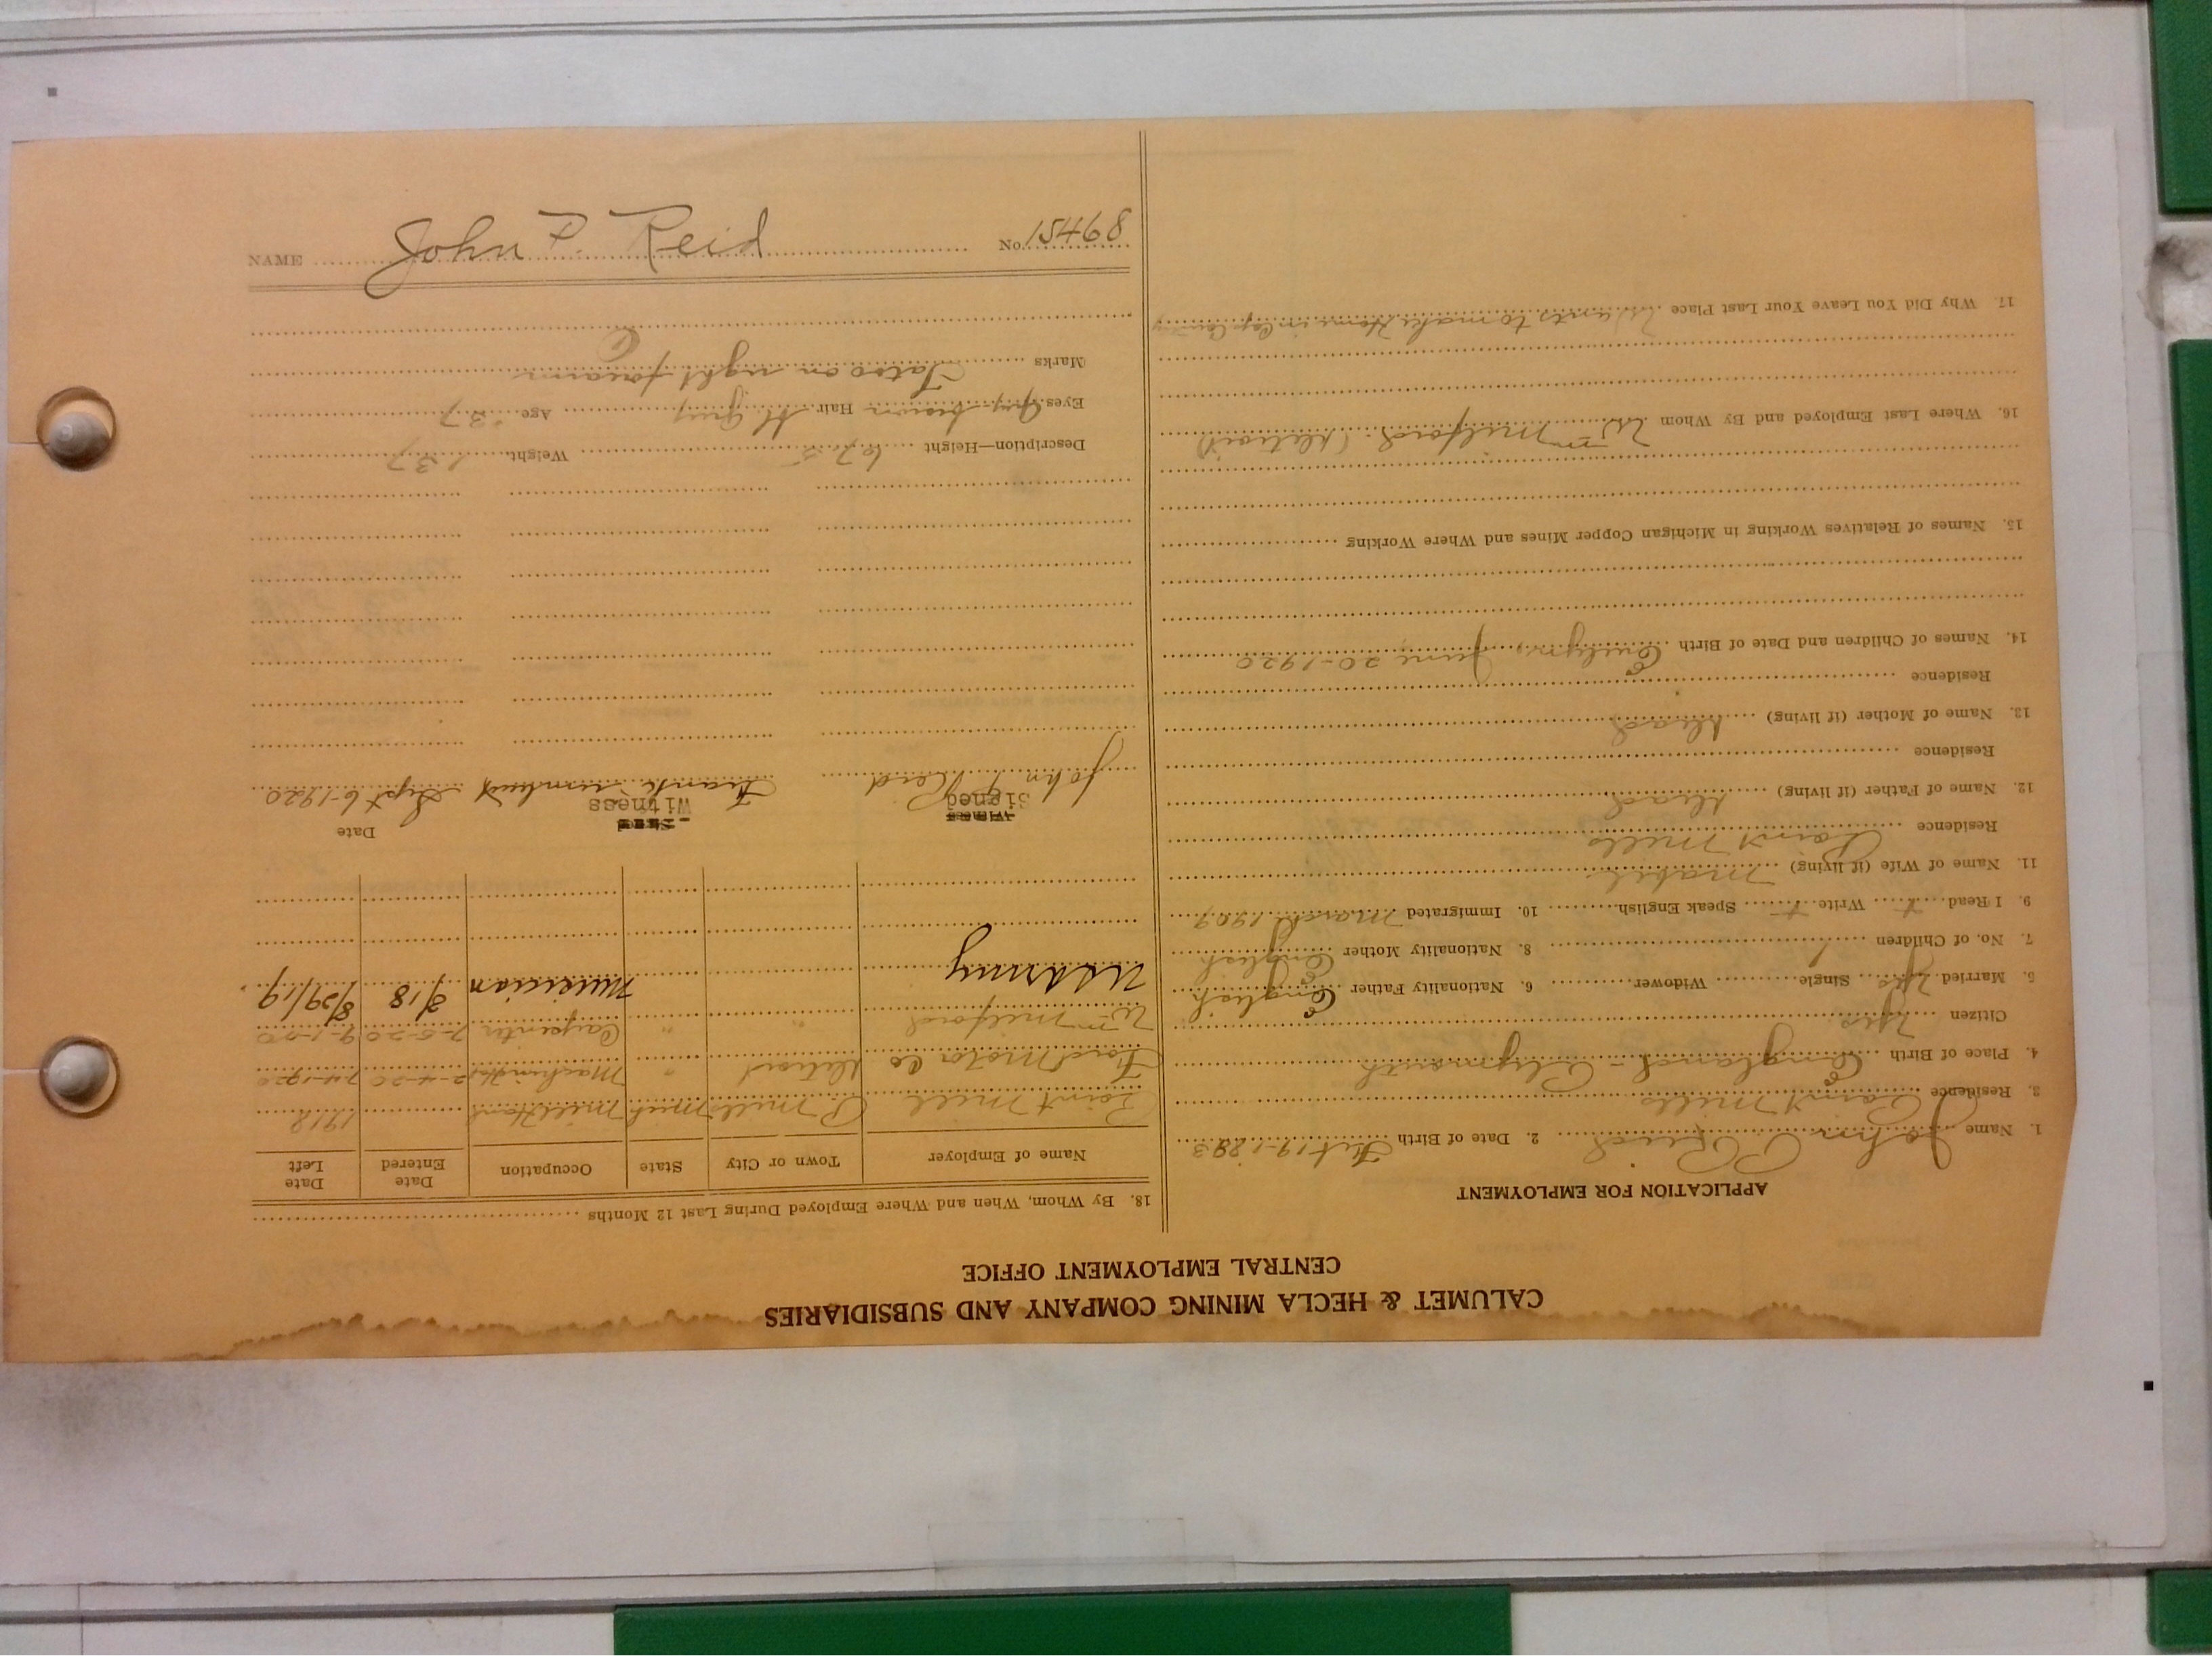 CALUMET & HECLA MINING COMPANY AND SUBSIDIARIES
CENTRAL EMPLOYMENT OFFICE
APPLICATION FOR EMPLOYMENT
1. Name John P Reid 2. Date of Birth 19-1893
3. Residence Point Mills
4. Place of Birth England - Plymouth
Citizen Yes
5. Married Yes Single Widower 6. Nationality Father English
7. No. of Children 1 8. Nationality Mother English
9. I Read + Write + Speak English 10. Immigrated March 1909
11. Name of Wife (if living) Mabel
Residence Point Mills
12. Name of Father (if living) Dead
Residence
13. Name of Mother (if living) Dead
Residence
14. Names of Children and Date of Birth Evelyn, June 20-1920
15. Names of Relatives Working in Michigan Copper Mines and Where Working
16. Where Last Employed and By Whom Wm Milford. (Detroit)
17. Why Did You Leave Your Last Place Wants to make Home in Cop. Country
18. By Whom, When and Where Employed During Last 12 Months
Name of Employer Town or City State Occupation Date Entered Date Left
Point Mill P. Mills Mich Mill Hand 1918
Ford Motor Co Detroit " Machinist 2-4-20 7-4-1920
Wm Milford " " Carpenter 7-5-20 9-1-20
US Army Musician 3/18 8/29/19
Signed Witness Date
John P Reid Frank Sept 6-1920
Description—Height Weight 137
Eyes Gray-brown Hair Gray Age 27
Marks Tatoo on right forearm
NAME John P. Reid No. 15468